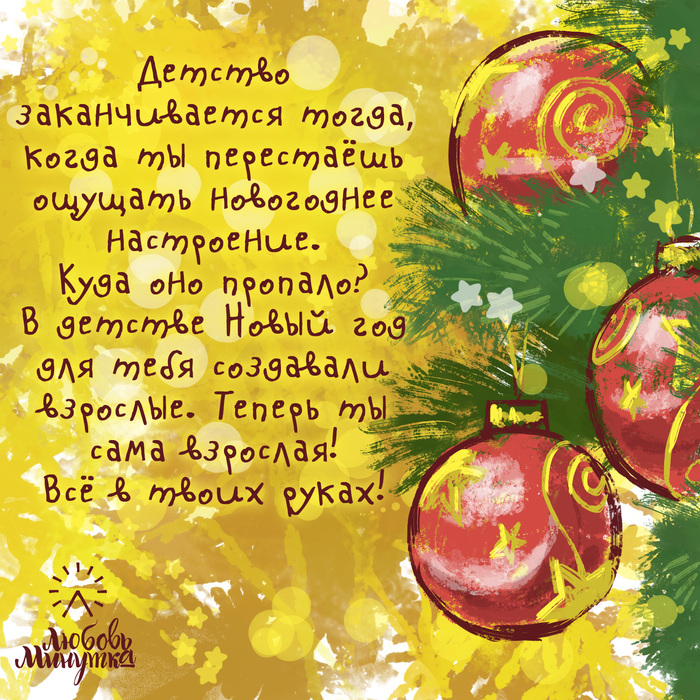 Детство
заканчивается тогда,
когда ты перестаёшь
ощущать новогоднее
настроение.
Куда оно пропало?
В детстве Новый год
для тебя создавали
взрослые. Теперь ты
сама взрослая!
Всё в твоих руках!
Любовь
Минутка